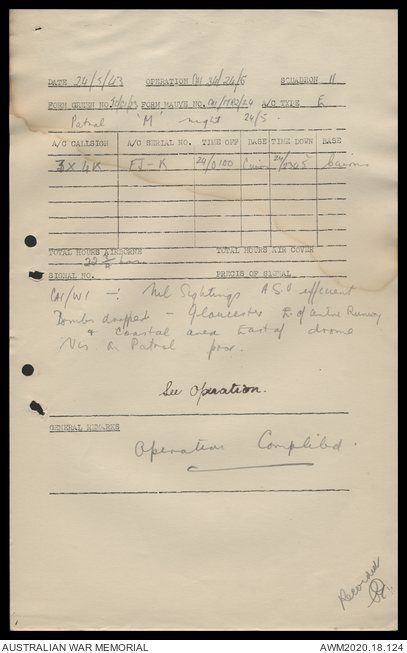 DATE 24/5/43 OPERATION CAI 34/24/5 SQUADRON 11
FORM GREEN NO. FORM MAUVE NO. A/C TYPE C
Patrol "M" night 24/5.
A/C CALLSIGN A/C SERIAL NO. TIME OFF BASE TIME DOWN BASE
3X4K FJ-K 24/0100 Cairns 24/2345 Cairns
TOTAL HOURS AIRBORNE TOTAL HOURS AIR COVER
22 3/4 hrs.
SIGNAL NO. PRECIS OF SIGNAL
CAI/W1 -: Nil Sightings ASV efficient
Bombs dropped - Gloucester E of Runway
& coastal area East of drome
Vis. on Patrol poor.
See Operation.
GENERAL REMARKS
Operation Completed.
Recorded
AUSTRALIAN WAR MEMORIAL AWM2020.18.124